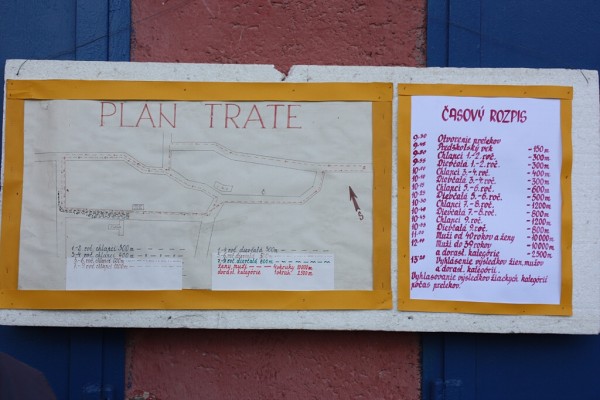 PLAN TRATE
S
1.-2. roč. chlapci 300 m
3.-4. roč. chlapci 400 m
ženy, muži
dorast. kategórie
10000 m
2500 m
ČASOVÝ ROZPIS
9.30 Otvorenie pretekov
9.40 Predškolský vek - 150 m
9.50 Chlapci 1.-2. roč. - 300 m
9.55 Dievčatá 1.-2. roč. - 300 m
Chlapci 3.-4. roč. - 400 m
Dievčatá 3.-4. roč. - 300 m
Chlapci 5.-6. roč. - 600 m
Dievčatá 5.-6. roč. - 500 m
Chlapci 7.-8. roč. - 1200 m
Dievčatá 7.-8. roč. - 800 m
Chlapci 9. roč. - 1200 m
Dievčatá 9. roč. - 800 m
Muži od 40 rokov a ženy - 10000 m
Muži do 39 rokov - 10000 m
a dorast. kategórie - 2500 m
Vyhlásenie výsledkov žien, mužov
a dorast. kategórií.
Vyhlasovanie výsledkov žiackych kategórií
počas pretekov.